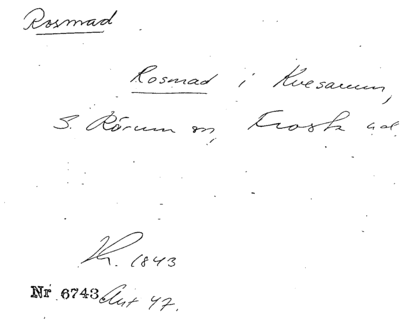 Rosmad
Rosmad i Kvesarum,
S. Rörum sn, Frosta hd.
Kr. 1843
Nr 6743 Ant 47.